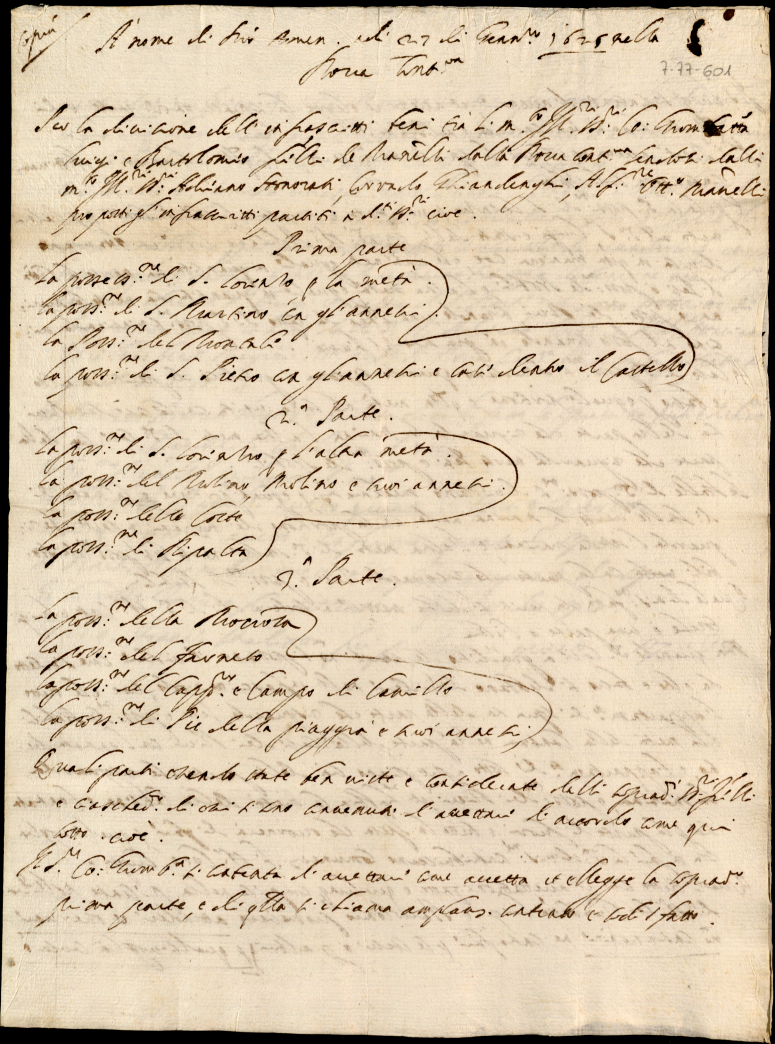 Copia
A nome di Dio Amen. adi 27 di Genn.ro 1625 nella
Rocca Cont.ra
7-77-601
Per la divisione delli infrascritti beni tra li m.to Ill.ri SS.ri Co: Giom Batta
Luigi e Bartolomio f.lli de Manelli dalla Rocca Cont.ra
m.to Ill.ri SS.ri Adriano Corrado et
proposti gl'infrascritti partiti a d.ti SS.ri cioè.
Prima parte
La possess.ne di S. Lorenzo p la metà.
La poss.ne di S. Martino con gli annessi.
La Poss.ne del
La poss.ne di S. Pietro con gli annessi e case dentro il Castello
2.a Parte.
La poss.ne di S. Lorenzo p l'altra metà.
La poss.ne del Molino e suoi annessi.
La poss.ne delle Corte
La poss.ne di Ripalta
3.a Parte.
La poss.ne della
La poss.ne del Farneto
La poss.ne del e Campo di Camillo
La poss.ne di Piè della piaggia e suoi annessi
Quali parti essendo state ben viste e considerate dalli soprad.i SS.ri f.lli
e ciasched.o di essi si sono convenuti d'accettarsi di accordo come qui
sotto. cioè.
Il S.r Co: Giom B.a si contenta di accettare come accetta et ellegge la soprad.a
prima parte, e di qlla si chiama contento e sodisfatto.